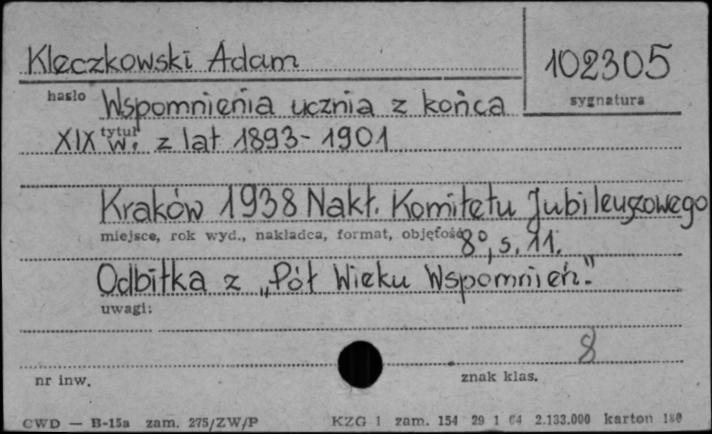 Kleczkowski Adam
102305
hasło
sygnatura
Wspomnienia ucznia z końca
XIX w. z lat 1893-1901
tytuł
Kraków 1938 Nakł. Komitetu Jubileuszowego
miejsce, rok wyd., nakładca, format, objętość
8°, s. 11.
Odbitka z „Pół Wieku Wspomnień."
uwagi:
8
nr inw.
znak klas.
CWD — B-15a zam. 275/ZW/P KZG 1 zam. 154 29 1 64 2.133.000 karton 180